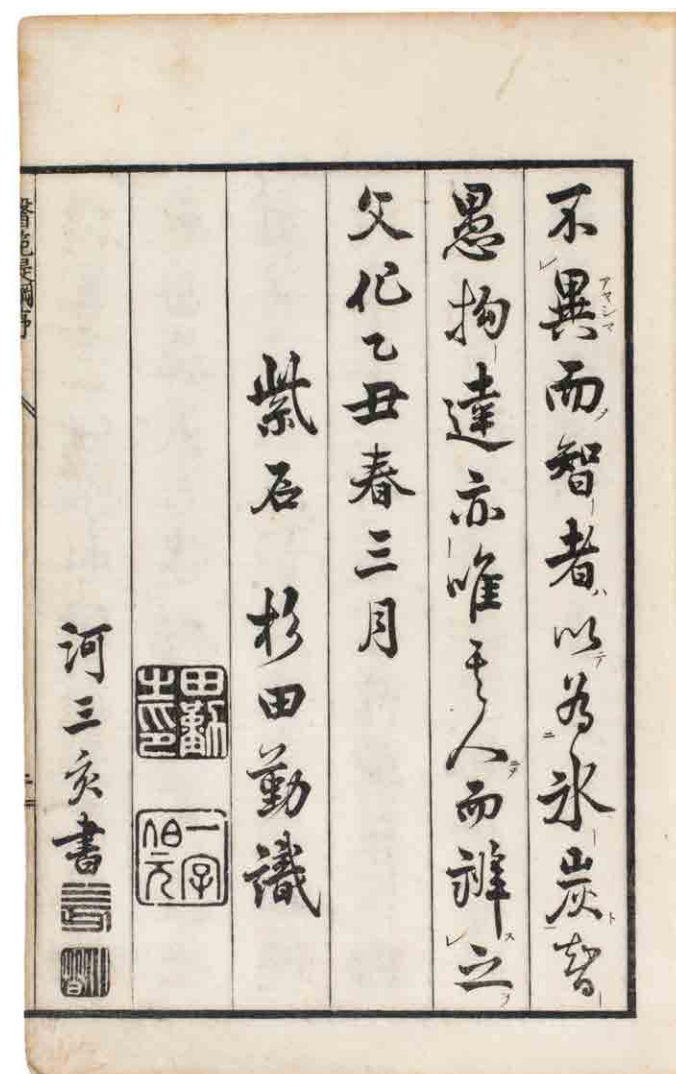 不異而智者以為氷炭智
愚拘達亦唯其人而辨之
文化乙丑春三月
紫石 杉田勤識
田勤之印
一字伯元
河三亥書
醫範提綱序